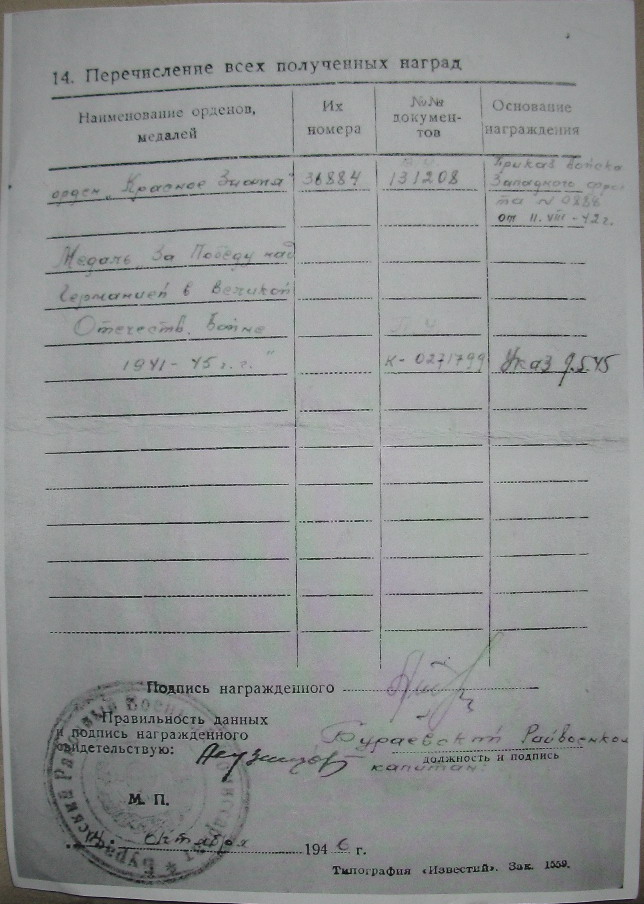 14. Перечисление всех полученных наград
Наименование орденов,
медалей
Их
номера
№№
докумен-
тов
Основание
награждения
орден „Красное Знамя" 36884 131208
Приказ войска
Западного фрон
та N 0888
от 11.VIII-42г.
Медаль „За Победу над
Германией в Великой
Отечеств. Войне
1941-45 г.г." К-0271799 Указ 9.5.45
Подпись награжденного
Правильность данных
и подпись награжденного
свидетельствую:
Бураевский Райвоенком
должность и подпись
капитан:
М. П.
Октября 1946 г.
Типография «Известий». Зак. 1559.